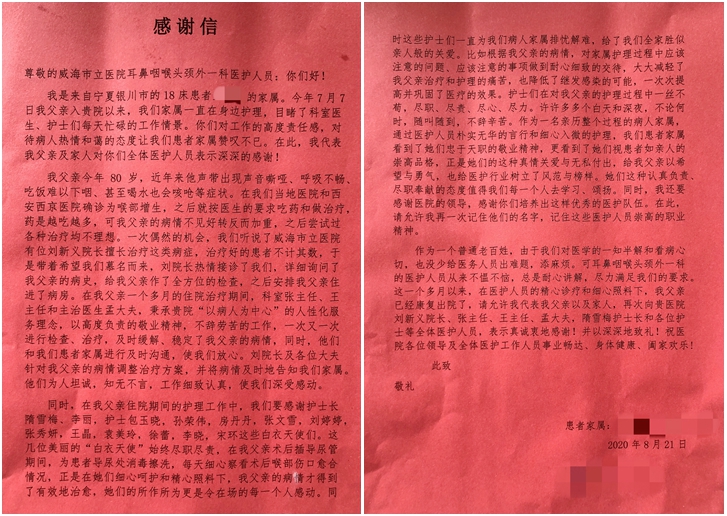 感谢信
尊敬的威海市立医院耳鼻咽喉头颈外一科医护人员：你们好！
我是来自宁夏银川市的18床患者
的家属。今年7月7
日我父亲入贵院以来，我们家属一直在身边护理，目睹了科室医
生、护士们每天忙碌的工作情景。你们对工作的高度责任感，对
待病人热情和蔼的态度让我们患者家属赞叹不已。在此，我代表
我父亲及家人对你们全体医护人员表示深深的感谢！
我父亲今年80岁，近年来他声带出现声音嘶哑、呼吸不畅、
吃饭难以下咽、甚至喝水也会咳呛等症状。在我们当地医院和西
安西京医院确诊为喉部增生，之后就按医生的要求吃药和做治疗，
药是越吃越多，可我父亲的病情不见好转反而加重，之后尝试过
各种治疗均不理想。一次偶然的机会，我们听说了威海市立医院
有位刘新义院长擅长治疗这类病症，治疗好的患者不计其数，于
是带着希望我们慕名而来，刘院长热情接诊了我们，详细询问了
我父亲的病史，给我父亲作了全方位的检查，之后安排我父亲住
进了病房。在我父亲一个多月的住院治疗期间，科室张主任、王
主任和主治医生孟大夫，秉承贵院“以病人为中心”的人性化服
务理念，以高度负责的敬业精神，不辞劳苦的工作，一次又一次
进行检查、治疗，及时缓解、稳定了我父亲的病情，同时，他们
和我们患者家属进行及时沟通，使我们放心。刘院长及各位大夫
针对我父亲的病情调整治疗方案，并将病情及时地告知我们家属。
他们为人坦诚，知无不言，工作细致认真，使我们深受感动。
同时，在我父亲住院期间的护理工作中，我们要感谢护士长
隋雪梅、李丽，护士包玉晓，孙荣伟，房丹丹，张文雪，刘婷婷，
张秀妍，王晶，袁美玲，徐蕾，李晓，宋环这些白衣天使们。这
几位美丽的“白衣天使”始终尽职尽责，在我父亲术后插导尿管
期间，为患者导尿处消毒擦洗，每天细心察看术后喉部伤口愈合
情况，正是在她们细心呵护和精心照料下，我父亲的病情才得到
了有效地治愈，她们的所作所为更是令在场的每一个人感动。同
时这些护士们一直为我们病人家属排忧解难，给了我们全家胜似
亲人般的关爱。比如根据我父亲的病情，对家属护理过程中应该
注意的问题、应该注意的事项做到耐心细致的交待，大大减轻了
我父亲治疗和护理的痛苦，也降低了继发感染的可能，一次次提
高并巩固了医疗的效果。护士们在对我父亲的护理过程中一丝不
苟，尽职、尽责、尽心、尽力。许许多多个白天和深夜，不论何
时，随叫随到，不辞辛苦。作为一名亲历整个过程的病人家属，
通过医护人员朴实无华的言行和细心入微的护理，我们患者家属
看到了她们忠于天职的敬业精神，更看到了她们视患者如亲人的
崇高品格，正是她们的这种真情关爱与无私付出，给我父亲以希
望与勇气，也给医护行业树立了风范与榜样。她们这种认真负责、
尽职奉献的态度值得我们每一个人去学习、颂扬。同时，我还要
感谢医院的领导，感谢你们培养出这样优秀的医护队伍。在此，
请允许我再一次记住他们的名字，记住这些医护人员崇高的职业
精神。
作为一个普通老百姓，由于我们对医学的一知半解和看病心
切，也没少给医务人员出难题，添麻烦。可耳鼻咽喉头颈外一科
的医护人员从来不愠不恼，总是耐心讲解，尽力满足我们的要求。
这一个多月以来，在医护人员的精心诊疗和细心照料下，我父亲
已经康复出院了，请允许我代表我父亲以及家人，再次向贵医院
刘新义院长、张主任、王主任、孟大夫，隋雪梅护士长和各位护
士等全体医护人员，表示真诚衷地感谢！并以深深地致礼！祝医
院各位领导及全体医护工作人员事业畅达、身体健康、阖家欢乐！
此致
敬礼
患者家属：
2020年8月21日